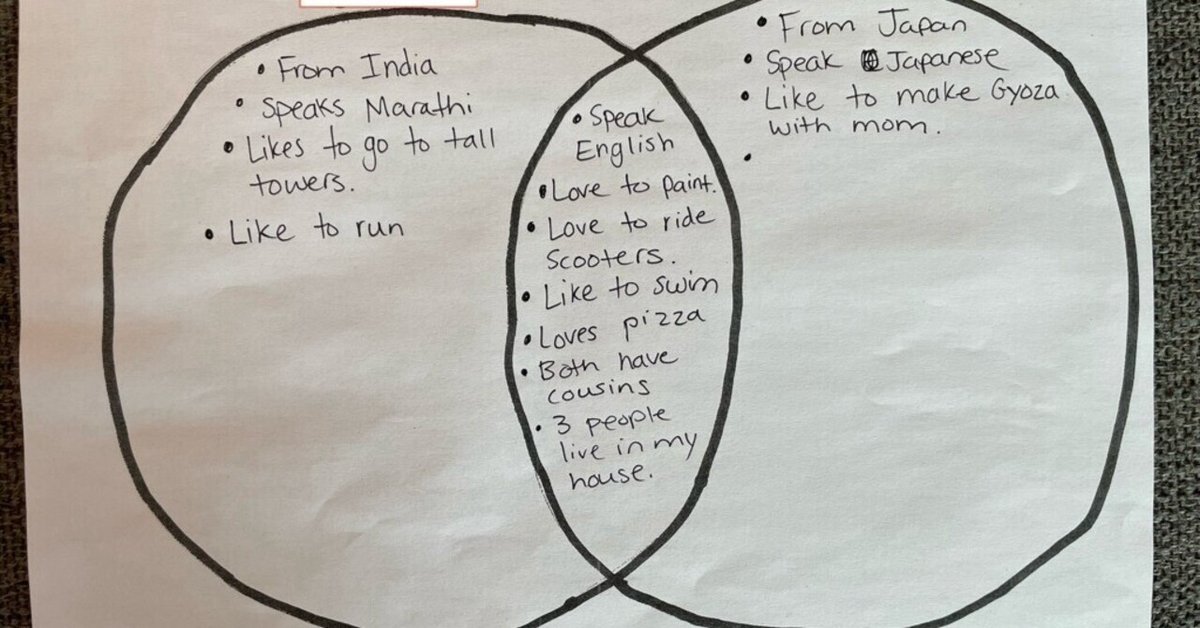 • From India
• Speaks Marathi
• Likes to go to tall
towers.
• Like to run
• Speak
English
• Love to paint.
• Love to ride
Scooters.
• Like to swim
• Loves pizza
• Both have
cousins
• 3 people
live in my
house.
• From Japan
• Speak Japanese
• Like to make Gyoza
with mom.
•